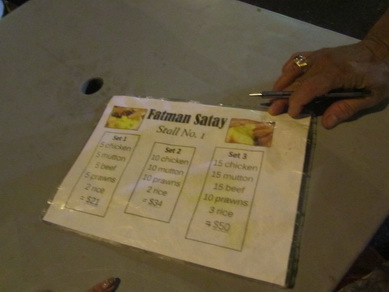 Fatman Satay
Stall No. 1
Set 1
5 chicken
5 mutton
5 beef
5 prawns
2 rice
= $21
Set 2
10 chicken
10 mutton
10 prawns
2 rice
= $34
Set 3
15 chicken
15 mutton
15 beef
10 prawns
3 rice
= $50